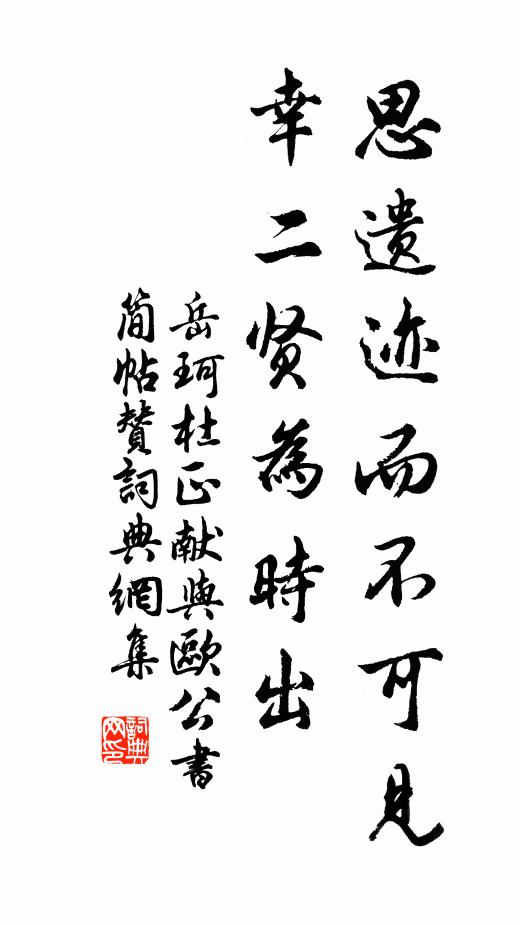 思遗迹而不可见
幸二贤為時出
岳珂杜正献與歐公書
简帖贊詞典網集
詞典網印